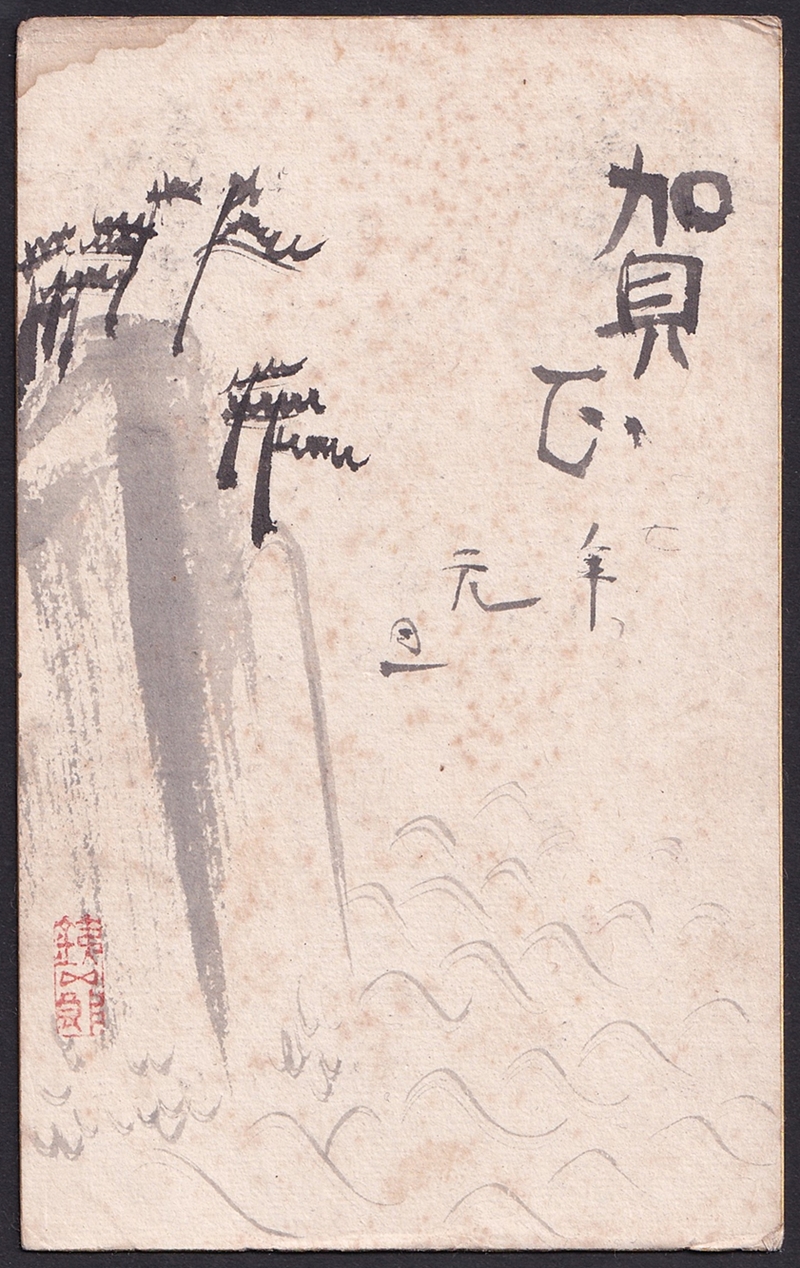 賀正
年元旦